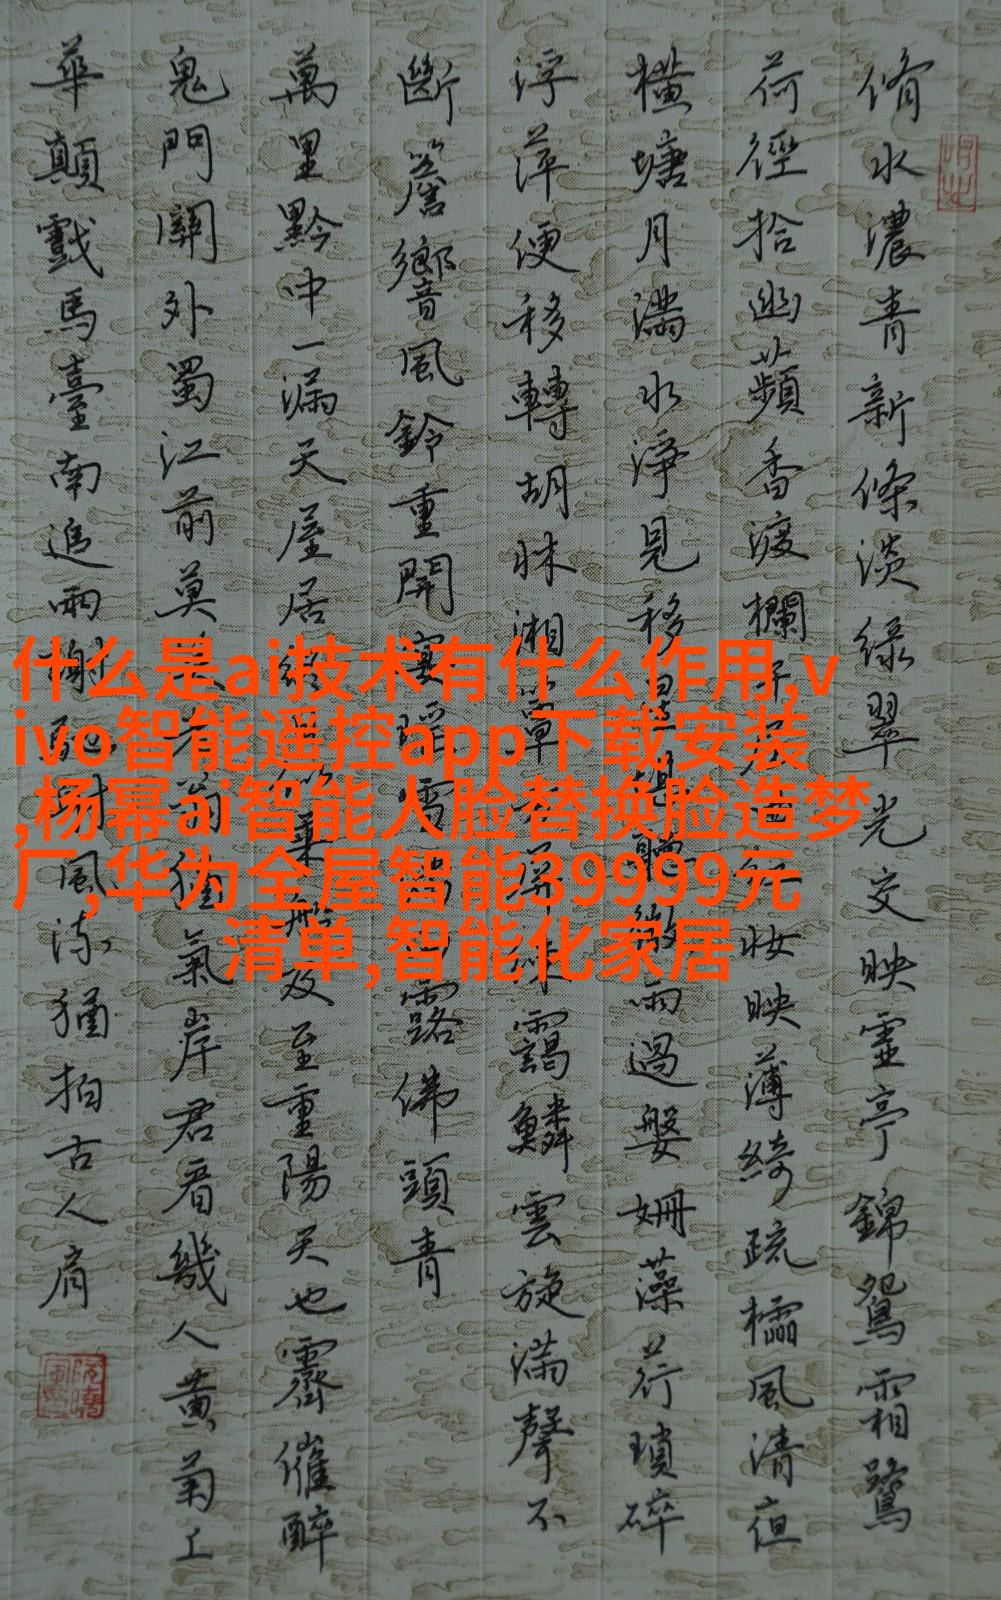 脩水濃青新條淡綠翠光交映虛亭錦鴛霜鷺
荷徑拾幽蘋香渡欄干屈曲紅妝映薄綺疏櫺風清夜
橫塘月滿水淨見移星堪聽微雨過媻姍藻荇瑣碎
浮萍便移轉胡牀湘簟方屏練靄鱗雲旋滿聲不
斷簷響風鈴重開宴瑤雪滿露佛頭青
萬里黔中一漏天屋居終日似乘船及至重陽天也霽催醉
鬼門關外蜀江前莫老翁猶氣岸君看幾人黃菊上
華顛戲馬臺南追兩謝馳射風流猶拍古人肩
什么是ai技术有什么作用,v
ivo智能遥控app下载安装
,杨幂ai智能人脸替换脸造梦
厂,华为全屋智能39999元
清单,智能化家居